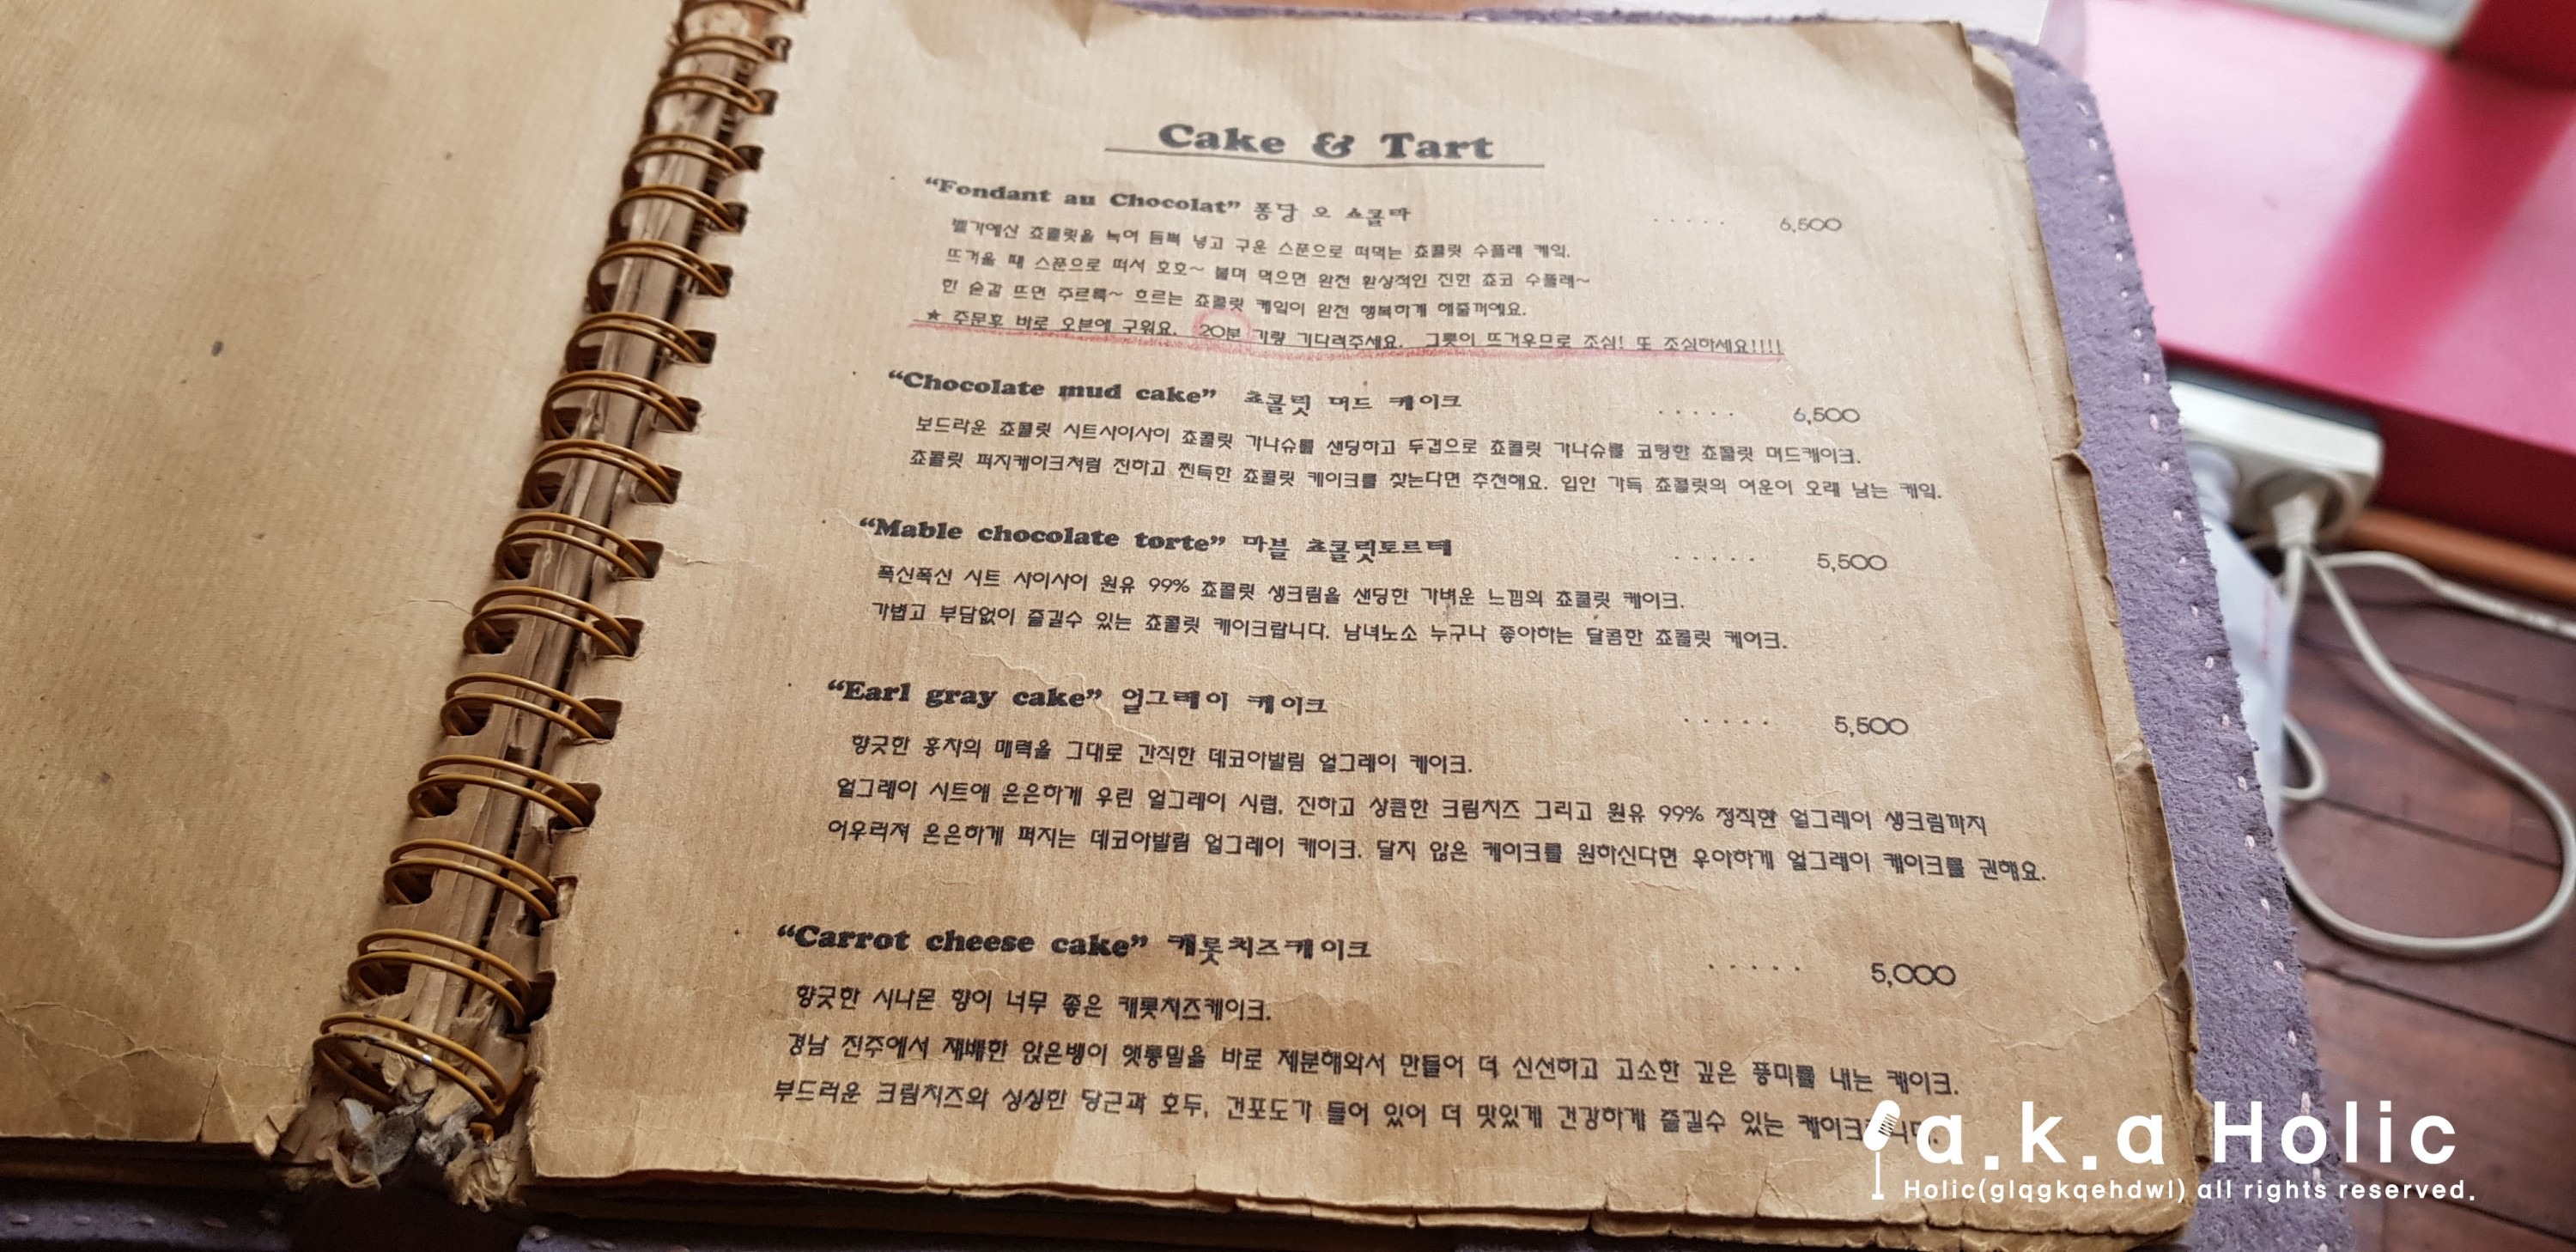 Cake & Tart
“Fondant au Chocolat” 퐁당 오 쇼콜라 ..... 6,500
벨기에산 쵸콜릿을 녹여 듬뿍 넣고 구운 스푼으로 떠먹는 쵸콜릿 수플레 케익.
뜨거울 때 스푼으로 떠서 호호~ 불며 먹으면 완전 환상적인 진한 쵸코 수플레~
한 숟갈 뜨면 주르륵~ 흐르는 쵸콜릿 케익이 완전 행복하게 해줄꺼예요.
★ 주문후 바로 오븐에 구워요. 20분 가량 기다려주세요. 그릇이 뜨거우므로 조심! 또 조심하세요!!!!
“Chocolate mud cake” 쵸콜릿 머드 케이크 ..... 6,500
보드라운 쵸콜릿 시트사이사이 쵸콜릿 가나슈를 샌딩하고 두겁으로 쵸콜릿 가나슈를 코팅한 쵸콜릿 머드케이크.
쵸콜릿 퍼지케이크처럼 진하고 찐득한 쵸콜릿 케이크를 찾는다면 추천해요. 입안 가득 쵸콜릿의 여운이 오래 남는 케익.
“Mable chocolate torte” 마블 쵸콜릿토르테 ..... 5,500
폭신폭신 시트 사이사이 원유 99% 쵸콜릿 생크림을 샌딩한 가벼운 느낌의 쵸콜릿 케이크.
가볍고 부담없이 즐길수 있는 쵸콜릿 케이크랍니다. 남녀노소 누구나 좋아하는 달콤한 쵸콜릿 케이크.
“Earl gray cake” 얼그레이 케이크 ..... 5,500
향긋한 홍차의 매력을 그대로 간직한 데코아발림 얼그레이 케이크.
얼그레이 시트에 은은하게 우린 얼그레이 시럽, 진하고 상콤한 크림치즈 그리고 원유 99% 정직한 얼그레이 생크림까지
어우러져 은은하게 퍼지는 데코아발림 얼그레이 케이크. 달지 않은 케이크를 원하신다면 우아하게 얼그레이 케이크를 권해요.
“Carrot cheese cake” 캐롯치즈케이크 ..... 5,000
향긋한 시나몬 향이 너무 좋은 캐롯치즈케이크.
경남 진주에서 재배한 앉은뱅이 햇통밀을 바로 제분해와서 만들어 더 신선하고 고소한 깊은 풍미를 내는 케이크.
부드러운 크림치즈와 싱싱한 당근과 호두, 건포도가 들어 있어 더 맛있게 건강하게 즐길수 있는
a.k.a Holic
Holic(glqgkqehdwl) all rights reserved.